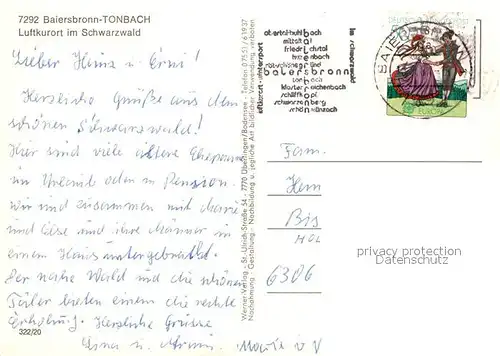 7292 Baiersbronn-TONBACH
Luftkurort im Schwarzwald
Lieber Heinz u. Erni!
Herzliche Grüße aus dem
schönen Schwarzwald!
Hier sind viele ältere Ehepaare
im Urlaub oder in Pension.
Wir sind zusammen mit
und Liese und ihre Männer in
einem Haus untergebracht.
Der nahe Wald und die schönen
Täler bieten einem die rechte
Erholung. Herzliche Grüsse
u.
322/20
Werner-Verlag - St.-Ulrich-Straße 54 - 7770 Überlingen/Bodensee - Telefon 07551/63937
Nachahmung - Gestaltung - Nachbildung u. jegliche Art bildlicher Verwendung verboten
obertal-buhlbach
mitteltal
friedrichstal
tonbach
röt-schönegründ
baiersbronn
kloster reichenbach
schwarzenberg
schönmünzach
im schwarzwald
BAIERSBRONN
DEUTSCHE BUNDESPOST
Fam.
Hem
Bis
HOL
6306
privacy protection
Darkoneo.com